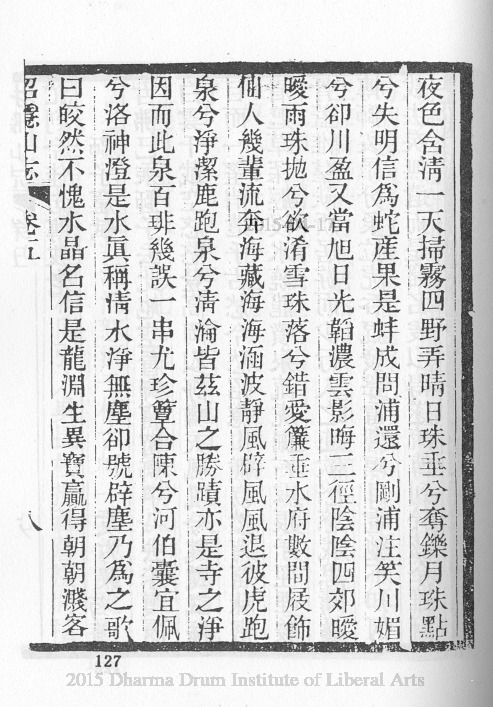 夜色含淸一天掃霧四野弄晴日珠垂兮奪鑠月珠點
兮失明信爲蛇産果是蚌成問浦還兮剛浦注笑川媚
兮卻川盈又當旭日光韜濃雲影晦三徑陰陰四郊曖
曖雨珠拋兮欲淆雪珠落兮錯愛簾垂水府數間屐飾
仙人幾輩流奔海藏海海涵波靜風辟風風退彼虎跑
泉兮淨潔鹿跑泉兮淸淪皆茲山之勝蹟亦是寺之淨
因而此泉百琲幾誤一串尤珍簟合陳兮河伯囊宜佩
兮洛神澄是水眞稱淸水淨無塵卻號辟塵乃爲之歌
曰皎然不愧水晶名信是龍淵生異寶贏得朝朝濺客
招隱山志
卷五
八
127
2015 Dharma Drum Institute of Liberal Arts